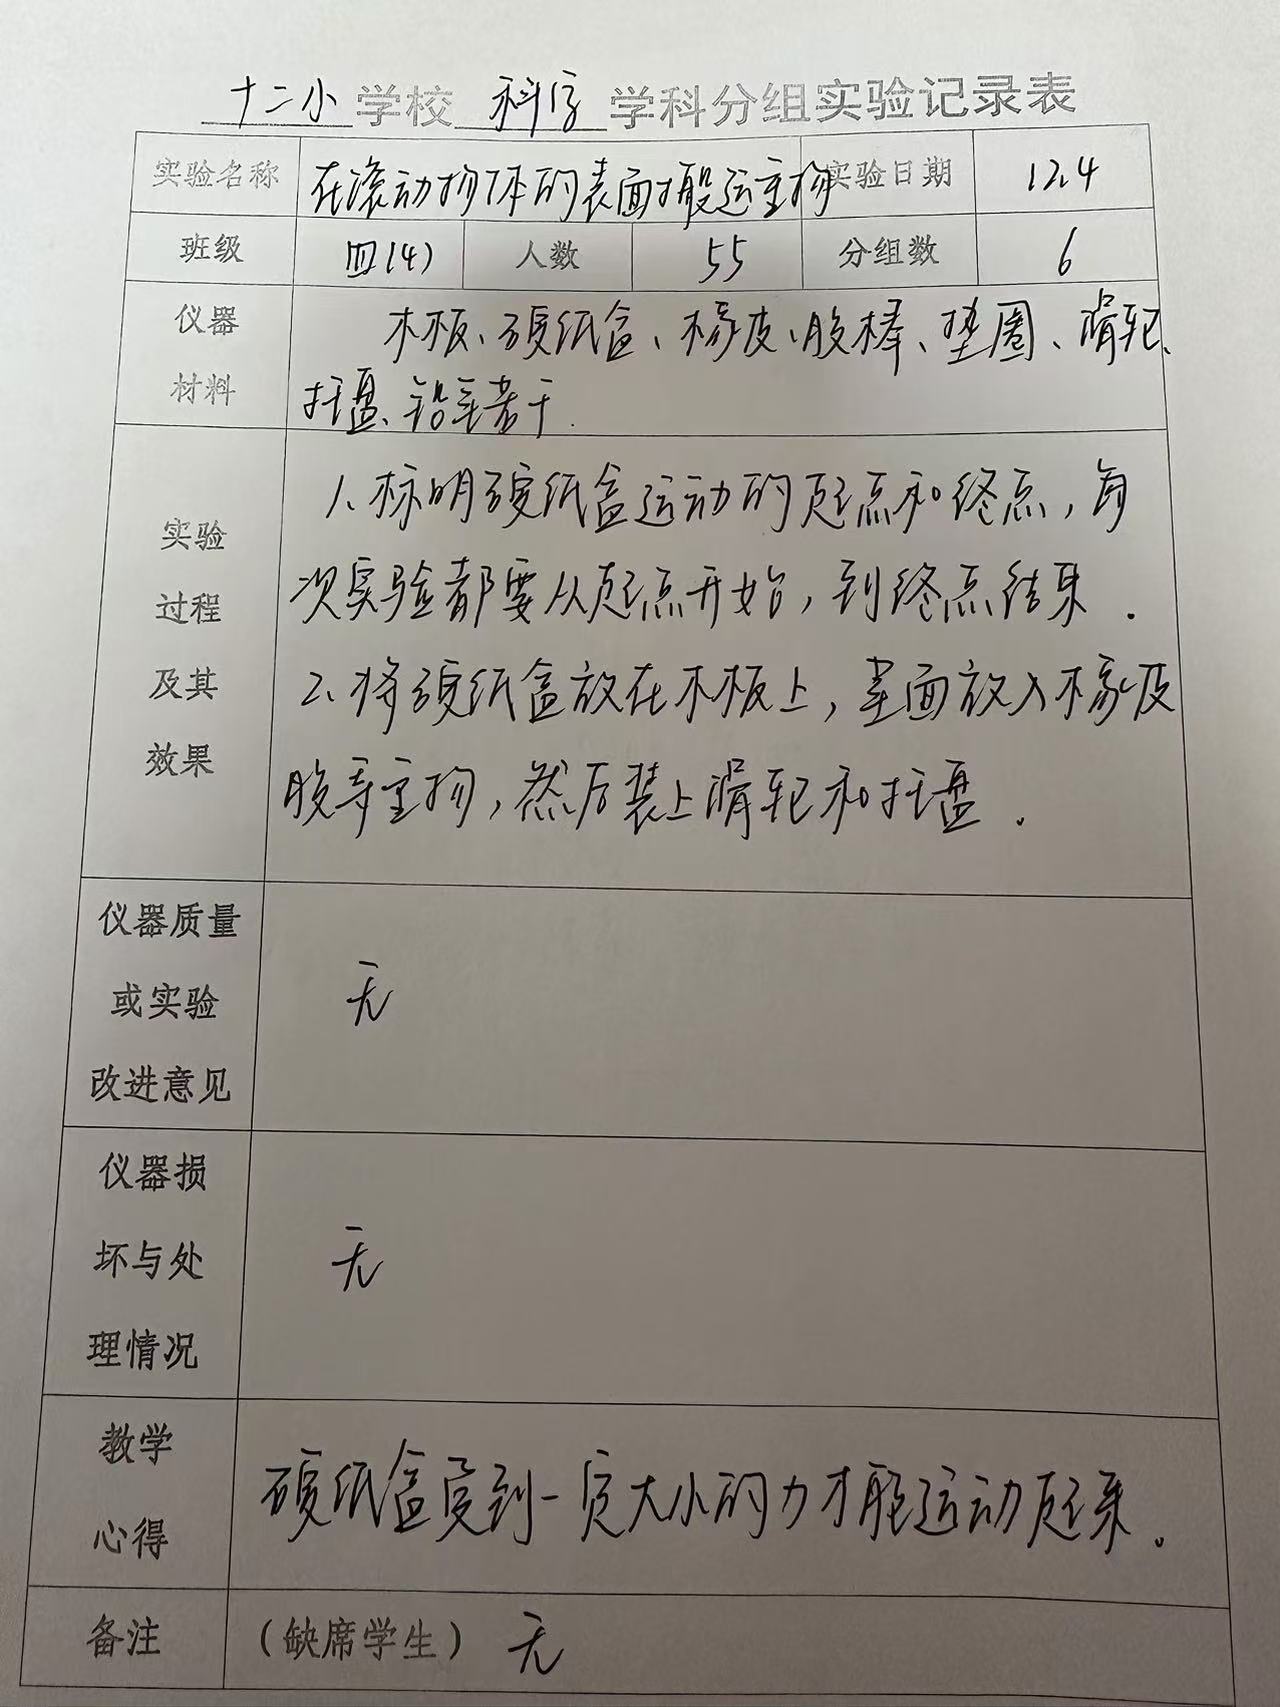 十二小学校科学学科分组实验记录表
实验名称 在滚动物体的表面搬运重物 实验日期 12.4
班级 四(4) 人数 55 分组数 6
仪器材料 木板、硬纸盒、橡皮、胶棒、垫圈、滑轮、
托盘、铅笔若干.
实验过程及其效果
1、标明硬纸盒运动的起点和终点，每
次实验都要从起点开始，到终点结束.
2、将硬纸盒放在木板上，里面放入橡皮
胶等重物，然后装上滑轮和托盘.
仪器质量或实验改进意见 无
仪器损坏与处理情况 无
教学心得 硬纸盒受到一定大小的力才能运动起来。
备注 （缺席学生） 无